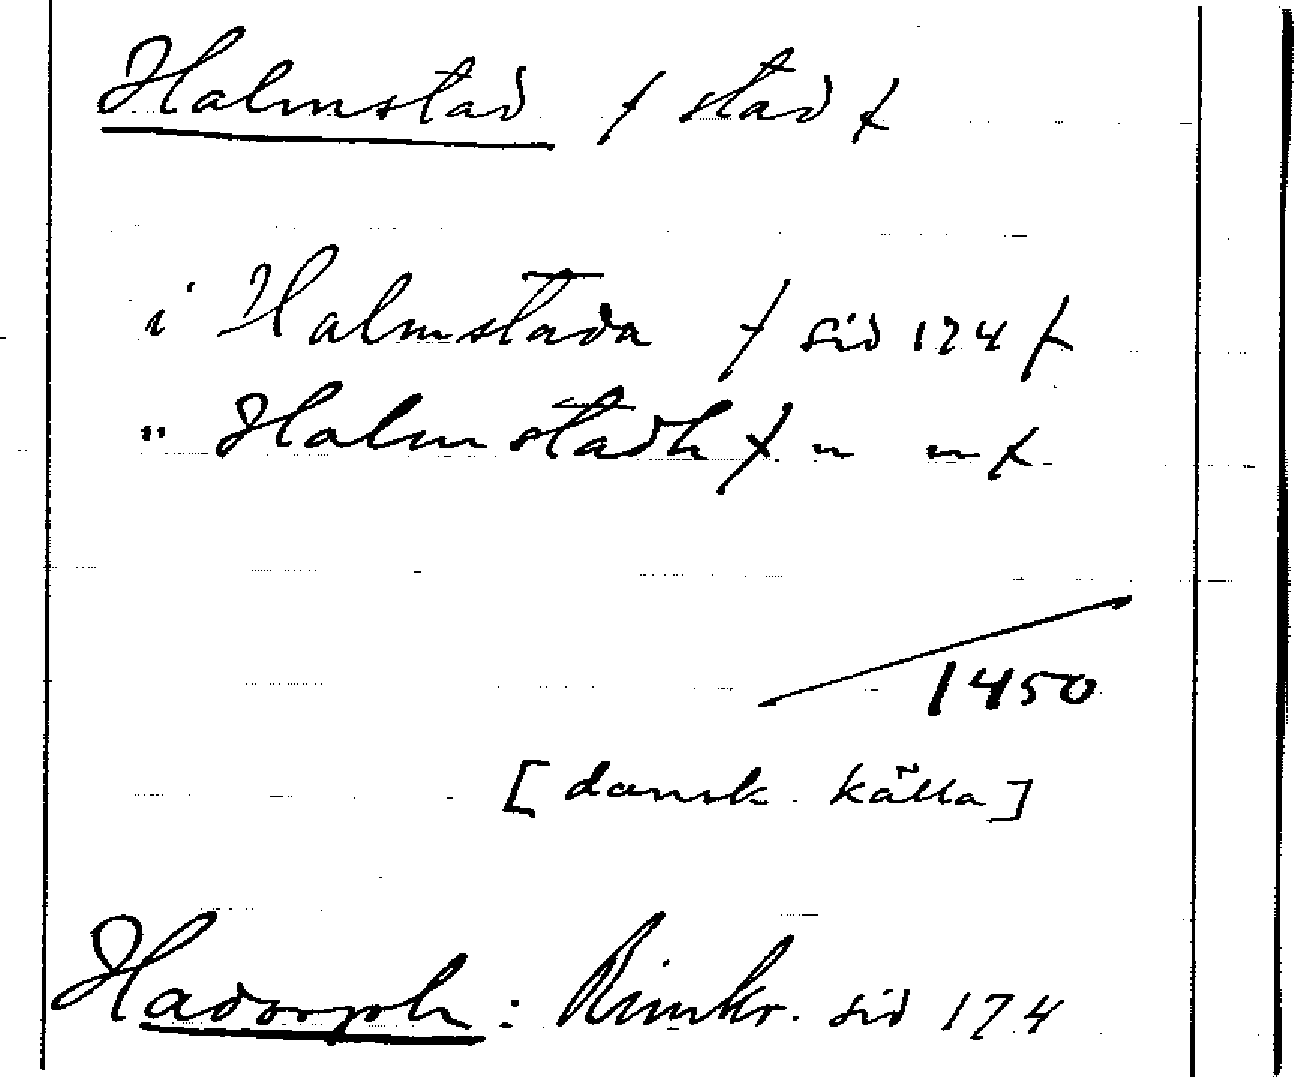 Halmstad / stad /
i Halmstada / sid 174 /
" Halmstadh / " " /
1450
[dansk källa]
Hadorph: Rimkr. sid 174